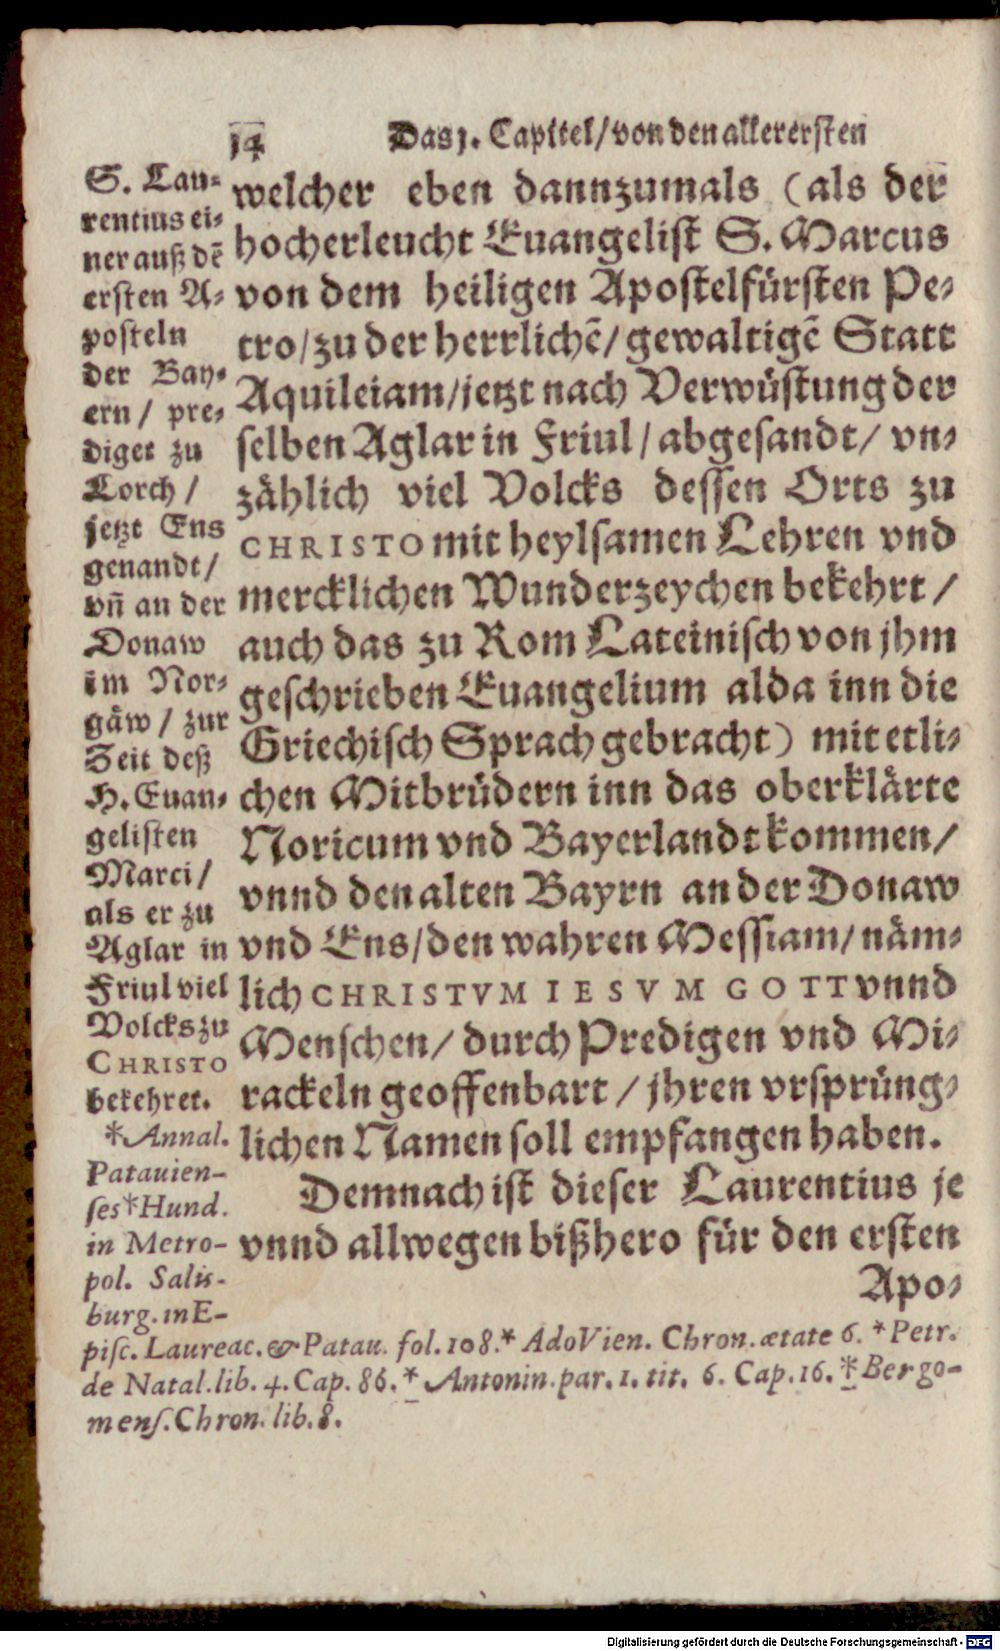 14 Das j. Capitel/ von den allerersten
S. Lau-
rentius ei-
ner auß dē
ersten A-
posteln
der Bay-
ern / pre-
diget zu
Lorch /
jetzt Ens
genandt/
vñ an der
Donaw
im Nor-
gäw / zur
Zeit deß
H. Euan-
gelisten
Marci/
als er zu
Aglar in
Friul viel
Volcks zu
CHRISTO
bekehret.
*Annal.
Patauien-
ses*Hund.
in Metro-
pol. Salis-
burg. in E-
welcher eben dannzumals (als der
hocherleucht Euangelist S. Marcus
von dem heiligen Apostelfürsten Pe-
tro/ zu der herrlichē/ gewaltigē Statt
Aquileiam/ jetzt nach Verwüstung der
selben Aglar in Friul/ abgesandt/ vn-
zählich viel Volcks dessen Orts zu
CHRISTO mit heylsamen Lehren vnd
mercklichen Wunderzeychen bekehrt/
auch das zu Rom Lateinisch von jhm
geschrieben Euangelium alda inn die
Griechisch Sprach gebracht) mit etli-
chen Mitbrüdern inn das oberklärte
Noricum vnd Bayerlandt kommen/
vnnd den alten Bayrn an der Donaw
vnd Ens/ den wahren Messiam/ näm-
lich CHRISTVM IESVM GOTT vnnd
Menschen/ durch Predigen vnd Mi-
rackeln geoffenbart / jhren vrsprüng-
lichen Namen soll empfangen haben.
Demnach ist dieser Laurentius je
vnnd allwegen bißhero für den ersten
Apo-
pisc. Laureac. & Patau. fol. 108.* Ado Vien. Chron. ætate 6. *Petr.
de Natal. lib. 4. Cap. 86.* Antonin. par. 1. tit. 6. Cap. 16. *Bergo-
mens. Chron. lib. 8.
Digitalisierung gefördert durch die Deutsche Forschungsgemeinschaft - DFG